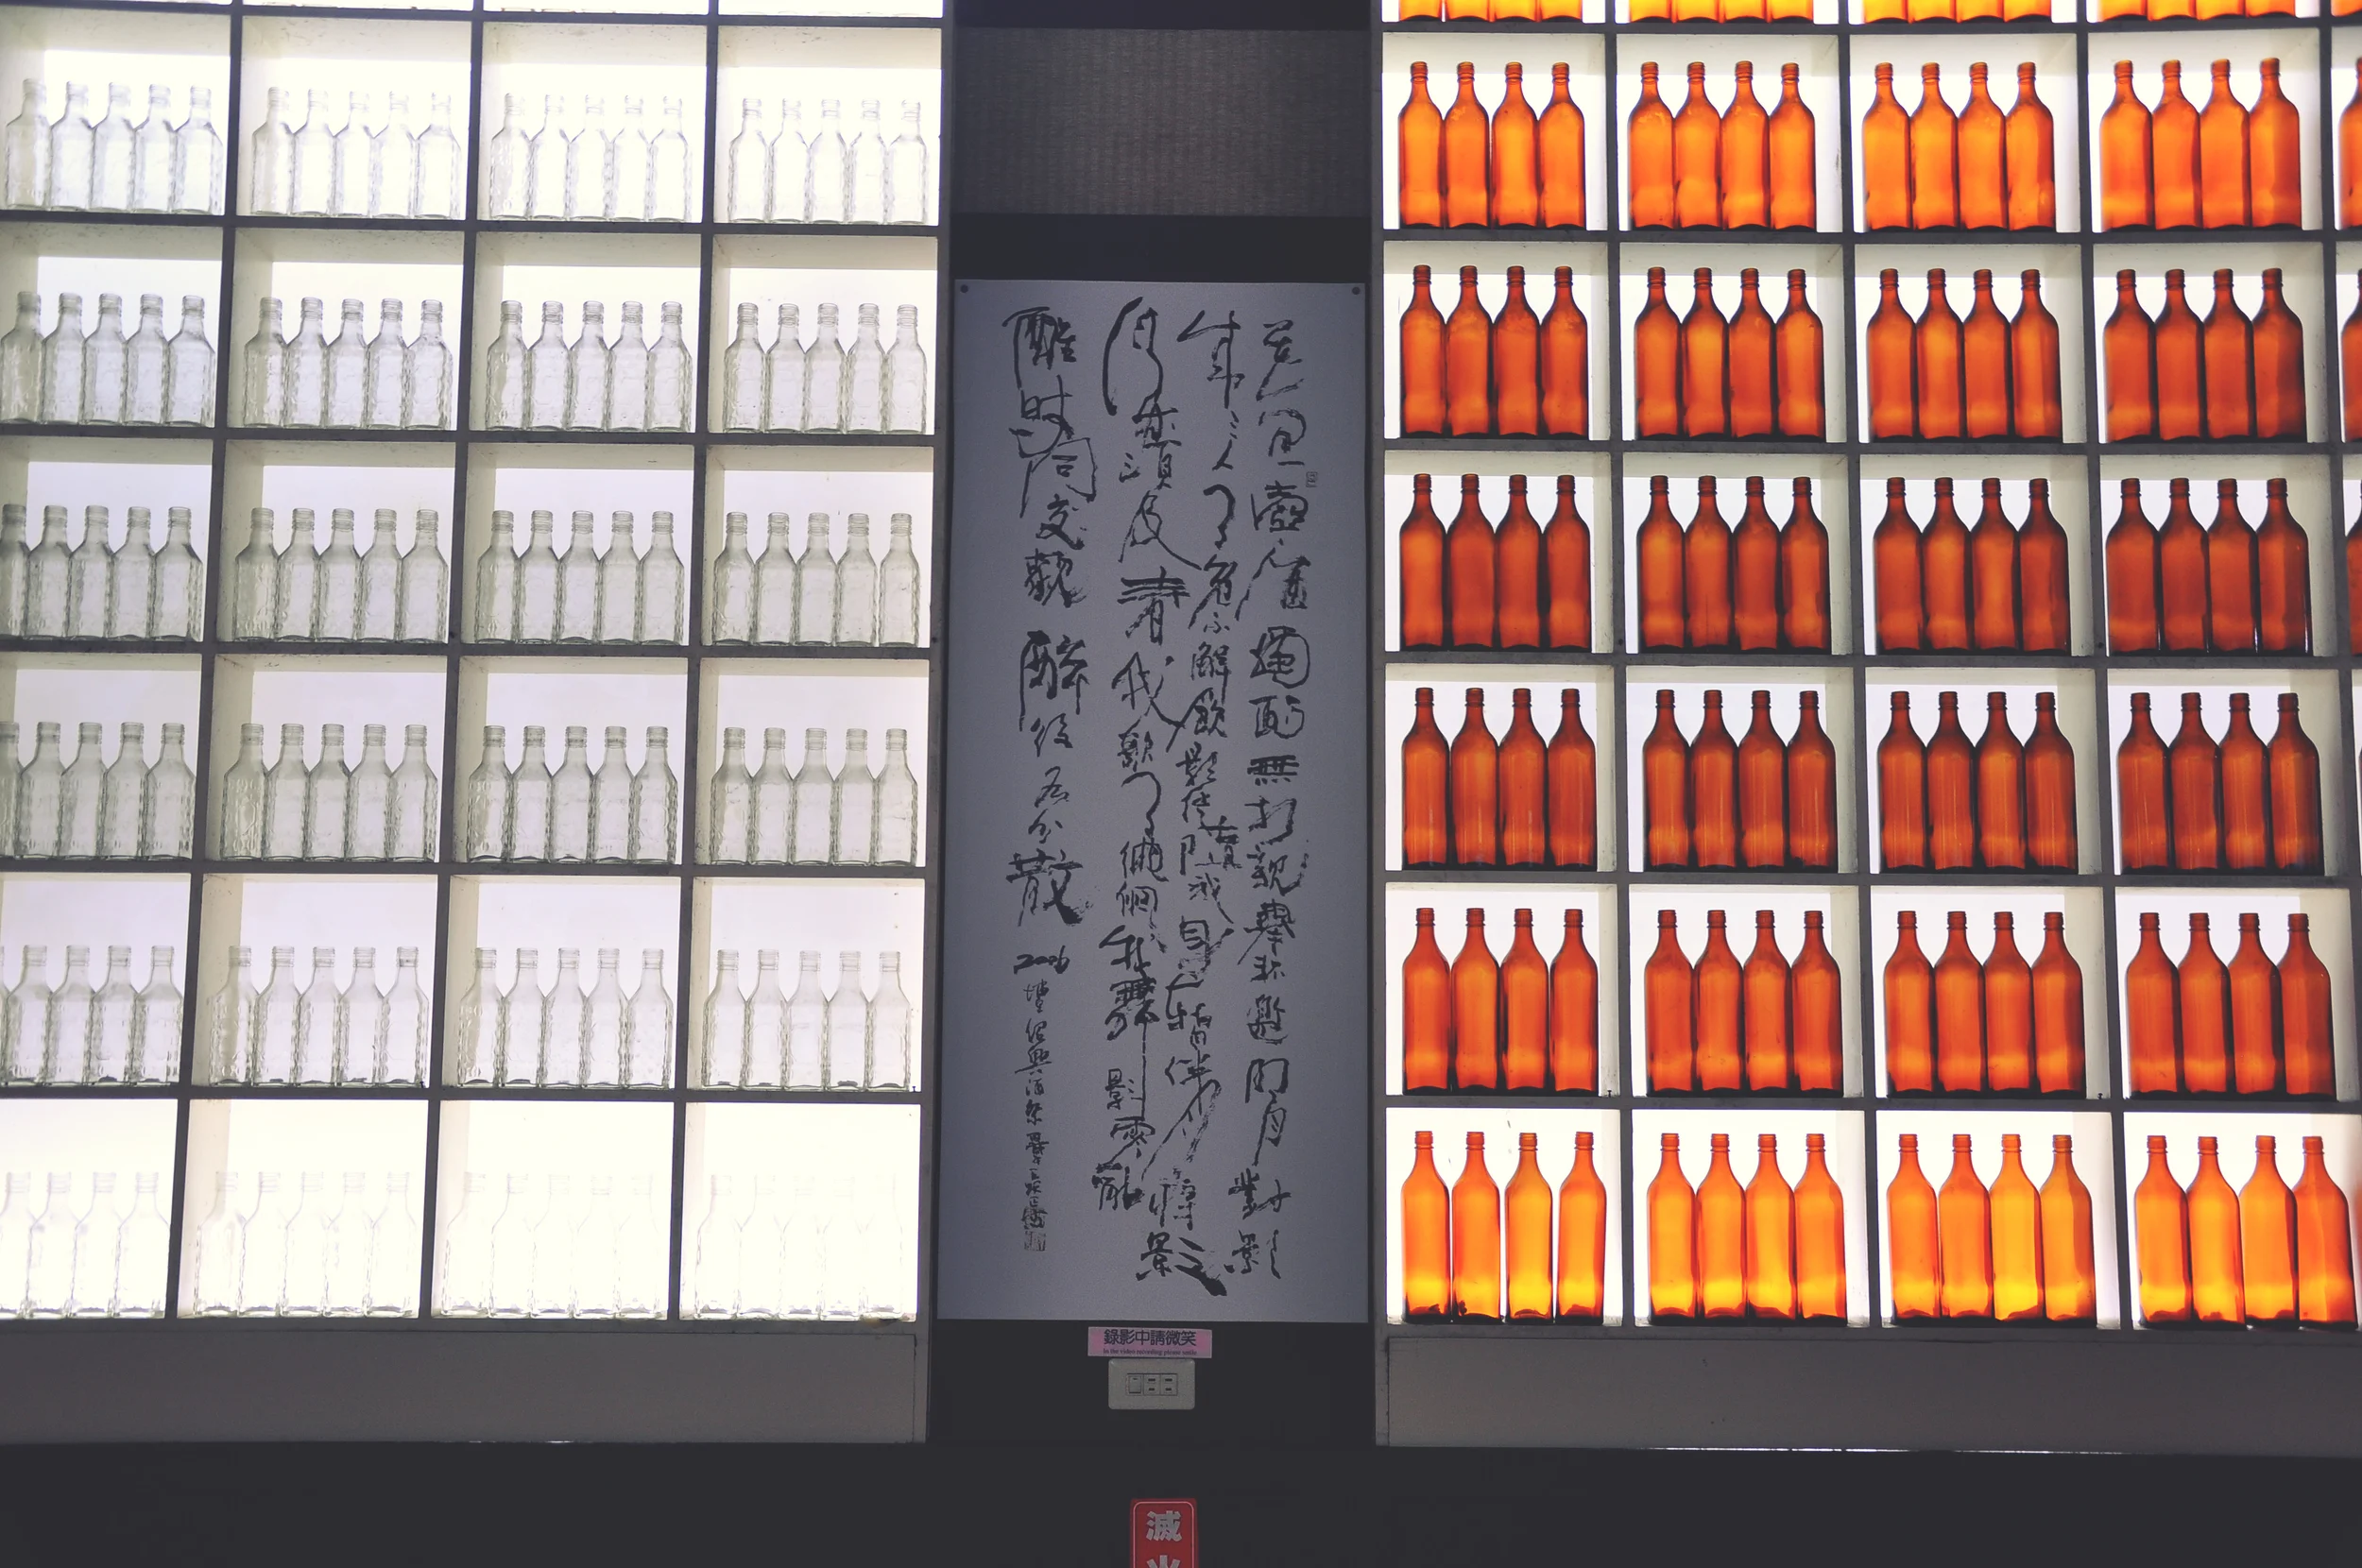 花間一壺酒獨酌無相親舉杯邀明月對影
成三人月既不解飲影徒隨我身暫伴月將影
行樂須及春我歌月徘徊我舞影零亂
醒時同交歡醉後各分散 2006 埔里紹興酒祭
錄影中請微笑
In the video recording please smile
滅